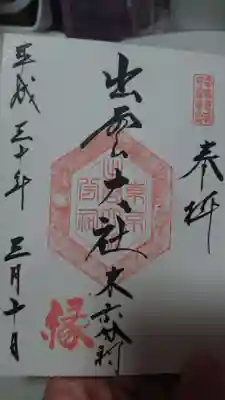 奉拝
出雲大社東京分祠
縁
平成三十年三月十日